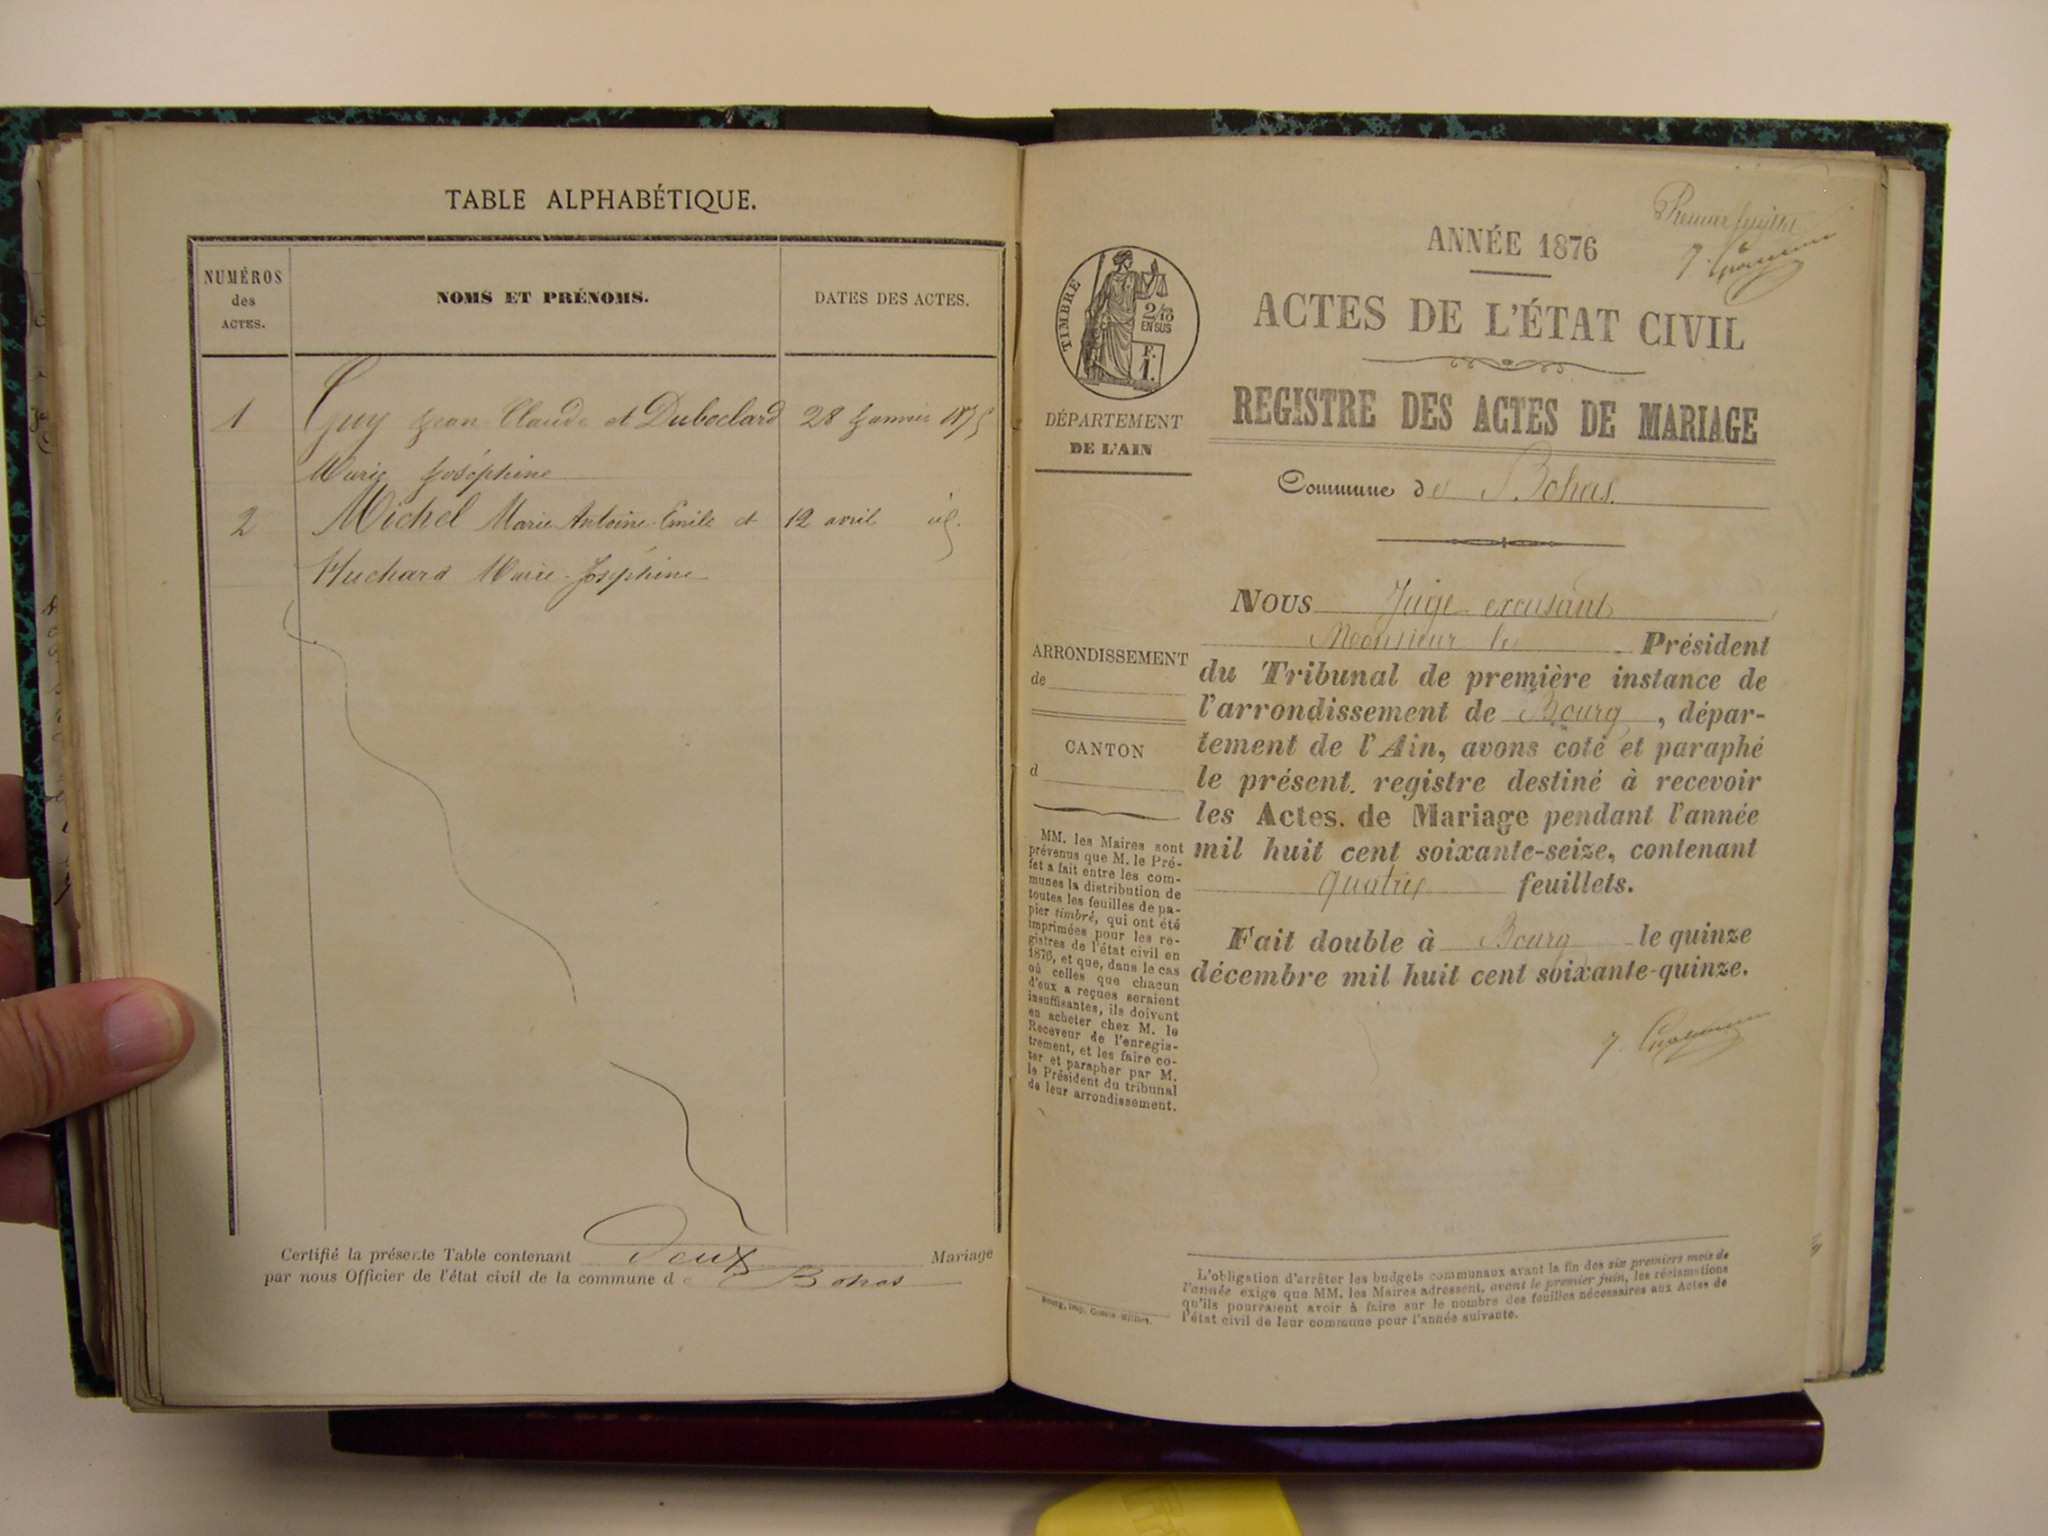 TABLE ALPHABÉTIQUE.
NUMÉROS
des
ACTES.
NOMS ET PRÉNOMS.
DATES DES ACTES.
1 Guy Jean Claude et Duboclard 28 Janvier 1875
Marie Joséphine
2 Michel Marie Antoine Emile et 12 avril id.
Huchard Marie Joséphine
Certifié la présente Table contenant deux Mariage
par nous Officier de l'état civil de la commune de Bohas
Premier feuillet
ANNÉE 1876
ACTES DE L'ÉTAT CIVIL
REGISTRE DES ACTES DE MARIAGE
TIMBRE
2/10
EN SUS
F.
1.
DÉPARTEMENT
DE L'AIN
Commune de Bohas.
NOUS Juge excusant
Monsieur le Président
du Tribunal de première instance de
l'arrondissement de Bourg, dépar-
tement de l'Ain, avons coté et paraphé
le présent registre destiné à recevoir
les Actes de Mariage pendant l'année
mil huit cent soixante-seize, contenant
quatre feuillets.
Fait double à Bourg le quinze
décembre mil huit cent soixante-quinze.
ARRONDISSEMENT
de
CANTON
d
MM. les Maires sont
prévenus que M. le Pré-
fet a fait entre les com-
munes la distribution de
toutes les feuilles de pa-
pier timbré, qui ont été
imprimées pour les re-
gistres de l'état civil en
1876, et que, dans le cas
où celles que chacun
d'eux a reçues seraient
insuffisantes, ils doivent
en acheter chez M. le
Receveur de l'enregis-
trement, et les faire co-
ter et parapher par M.
le Président du tribunal
de leur arrondissement.
L'obligation d'arrêter les budgets communaux avant la fin des six premiers mois de
l'année exige que MM. les Maires adressent, avant le premier juin, les réclamations
qu'ils pourraient avoir à faire sur le nombre des feuilles nécessaires aux Actes de
l'état civil de leur commune pour l'année suivante.
Bourg, imp.